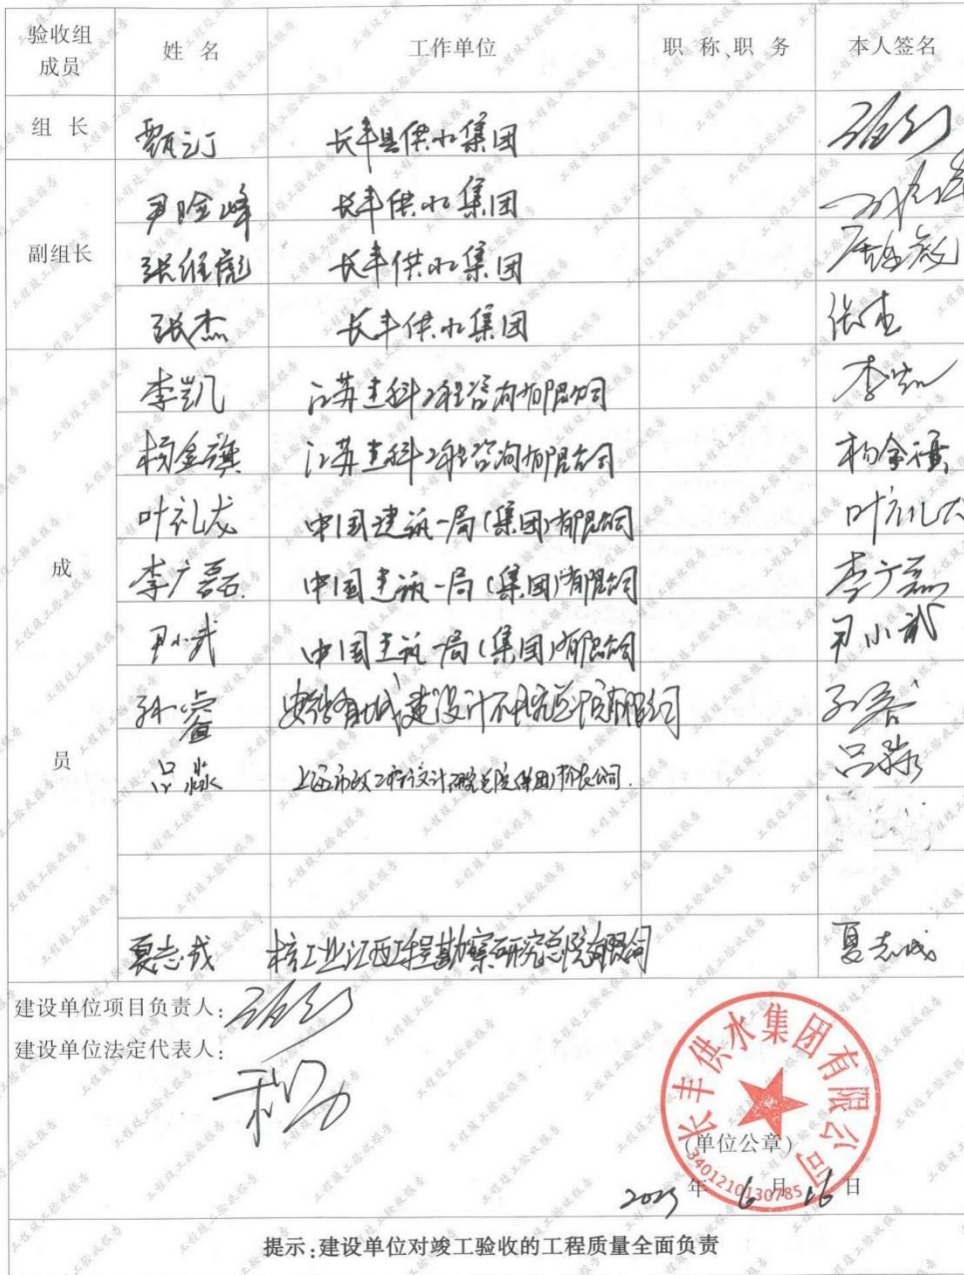 验收组成员 姓 名 工作单位 职 称、职 务 本人签名
组 长 甄汀 长丰县供水集团
副组长 尹险峰 长丰供水集团
张维彪 长丰供水集团
张杰 长丰供水集团 张杰
成员 李凯 江苏建科工程咨询有限公司 李凯
杨金旗 江苏建科工程咨询有限公司 杨金旗
叶礼龙 中国建筑一局(集团)有限公司 叶礼龙
李广磊 中国建筑一局(集团)有限公司 李广磊
尹小武 中国建筑一局(集团)有限公司 尹小武
孙睿 安徽省城建设计研究总院有限公司 孙睿
吕淼 上海市政工程设计研究总院(集团)有限公司. 吕淼
夏志成 核工业江西工程勘察研究总院有限公司 夏志成
建设单位项目负责人:
建设单位法定代表人:
长丰供水集团有限公司
(单位公章)
3401210130785
年 6 月 16 日
提示:建设单位对竣工验收的工程质量全面负责
工程竣工验收报告